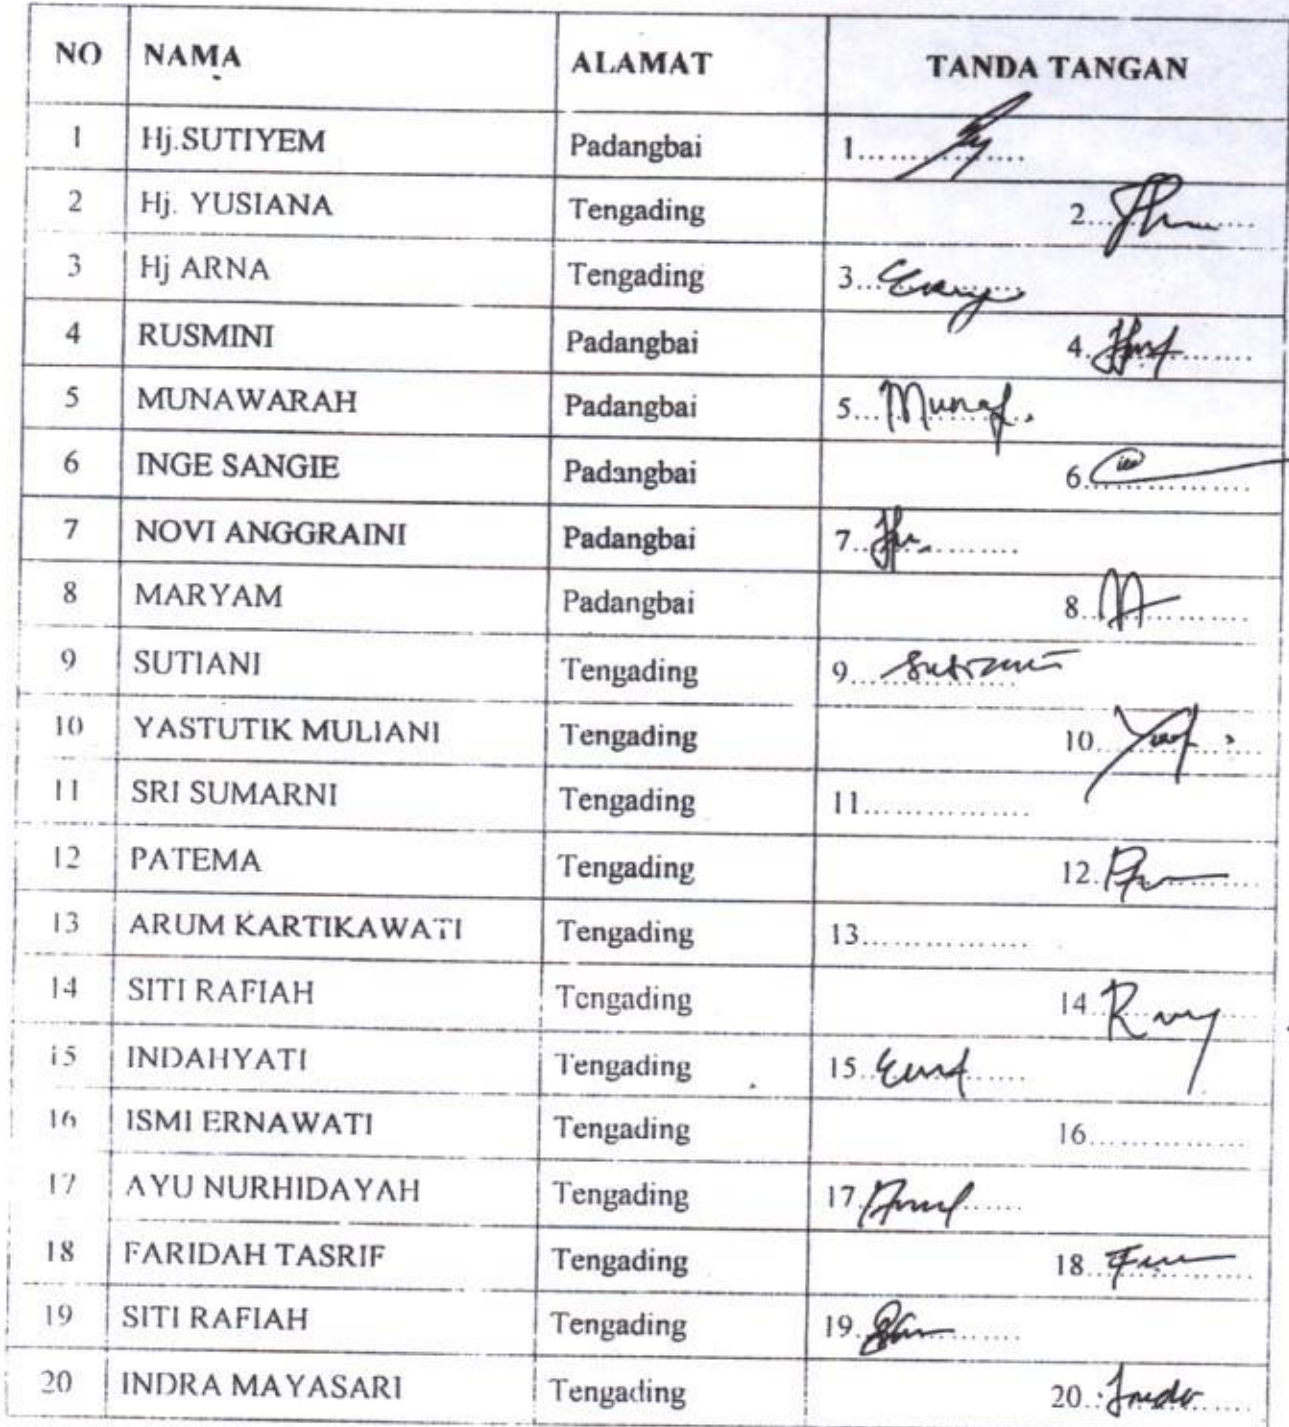 NO NAMA ALAMAT TANDA TANGAN
1 Hj.SUTIYEM Padangbai 1................
2 Hj. YUSIANA Tengading 2................
3 Hj ARNA Tengading 3................
4 RUSMINI Padangbai 4................
5 MUNAWARAH Padangbai 5................
6 INGE SANGIE Padangbai 6................
7 NOVI ANGGRAINI Padangbai 7................
8 MARYAM Padangbai 8................
9 SUTIANI Tengading 9................
10 YASTUTIK MULIANI Tengading 10................
11 SRI SUMARNI Tengading 11................
12 PATEMA Tengading 12................
13 ARUM KARTIKAWATI Tengading 13................
14 SITI RAFIAH Tengading 14................
15 INDAHYATI Tengading 15................
16 ISMI ERNAWATI Tengading 16................
17 AYU NURHIDAYAH Tengading 17................
18 FARIDAH TASRIF Tengading 18................
19 SITI RAFIAH Tengading 19................
20 INDRA MAYASARI Tengading 20................